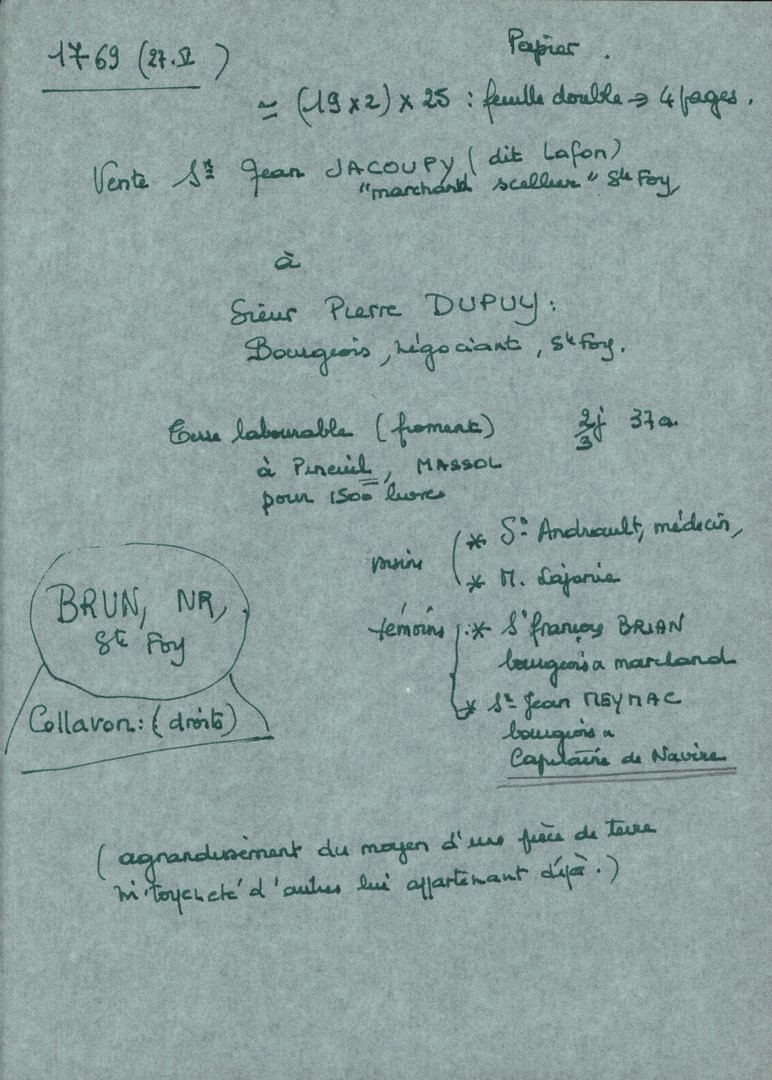 1769 (27.V)
Papier.
≃ (19 x 2) x 25 : feuille double → 4 pages.
Vente Sr Jean JACOUPY (dit Lafon)
"marchand scellier" Ste Foy
à
Sieur Pierre DUPUY :
Bourgeois, négociant, Ste Foy.
Terre labourable (froment) 2/3 j 37 a.
à Pineuil, MASSOL
pour 1500 livres
voisins ( * Sr Andrault, médecin,
* M. Lajarie
témoins : * Sr françois BRIAN
bourgeois & marchand
* Sr Jean MEYMAC
bourgeois &
Capitaine de Navire
BRUN, NR,
Ste Foy
Collavon : (droits)
(agrandissement du moyen d'une pièce de terre
mitoyenneté d'autres lui appartenant déjà.)